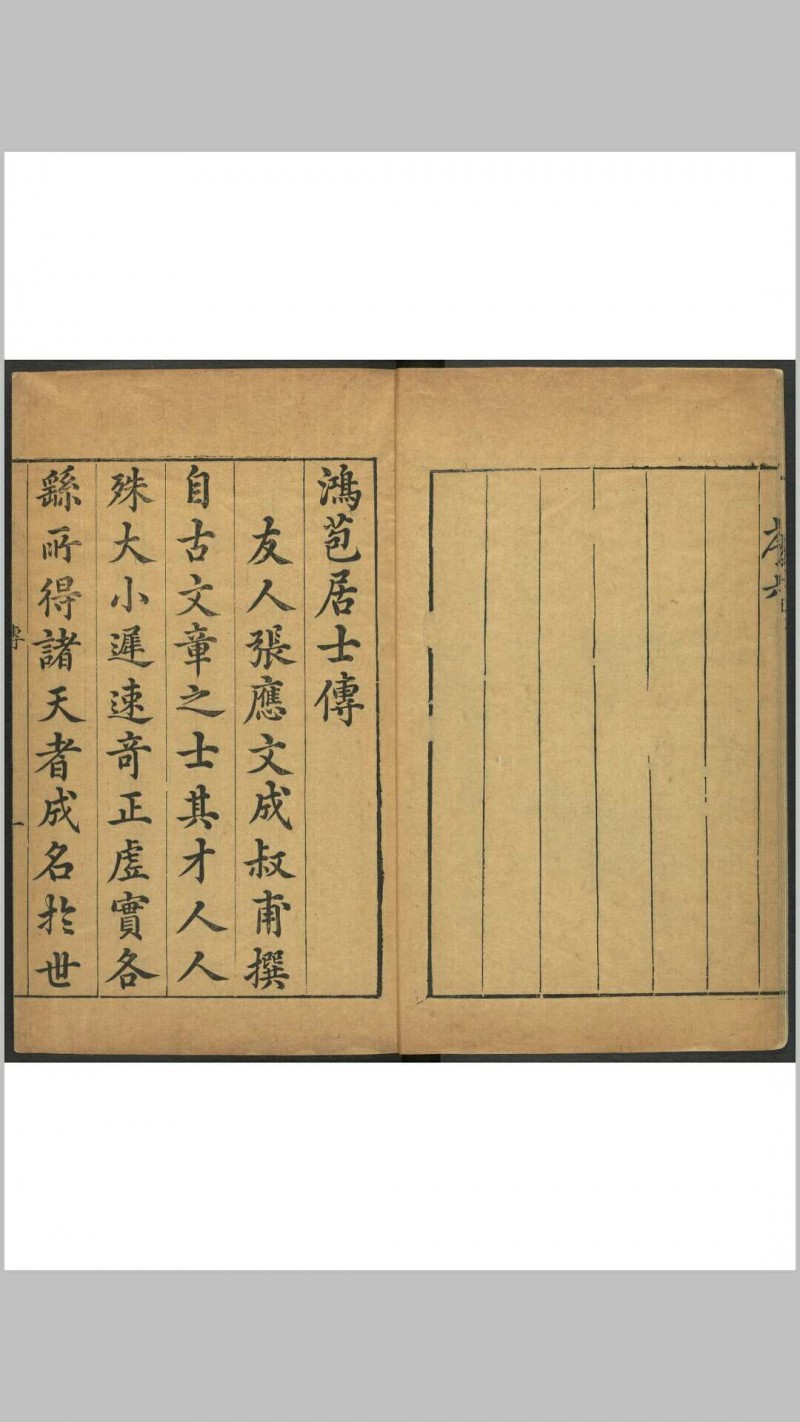 鴻苞居士傳
友人張應文成叔甫撰
自古文章之士其才人人
殊大小遲速竒正虛實各
繇所得諸天者成名於世
傳
一